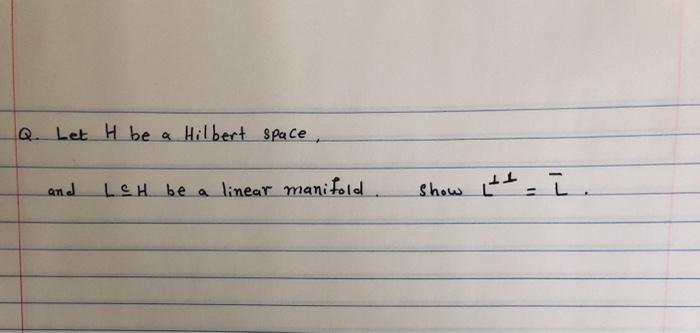 Q. Let H be a Hilbert space,
and L ⊆ H be a linear manifold. Show L^⊥⊥ = L̄.